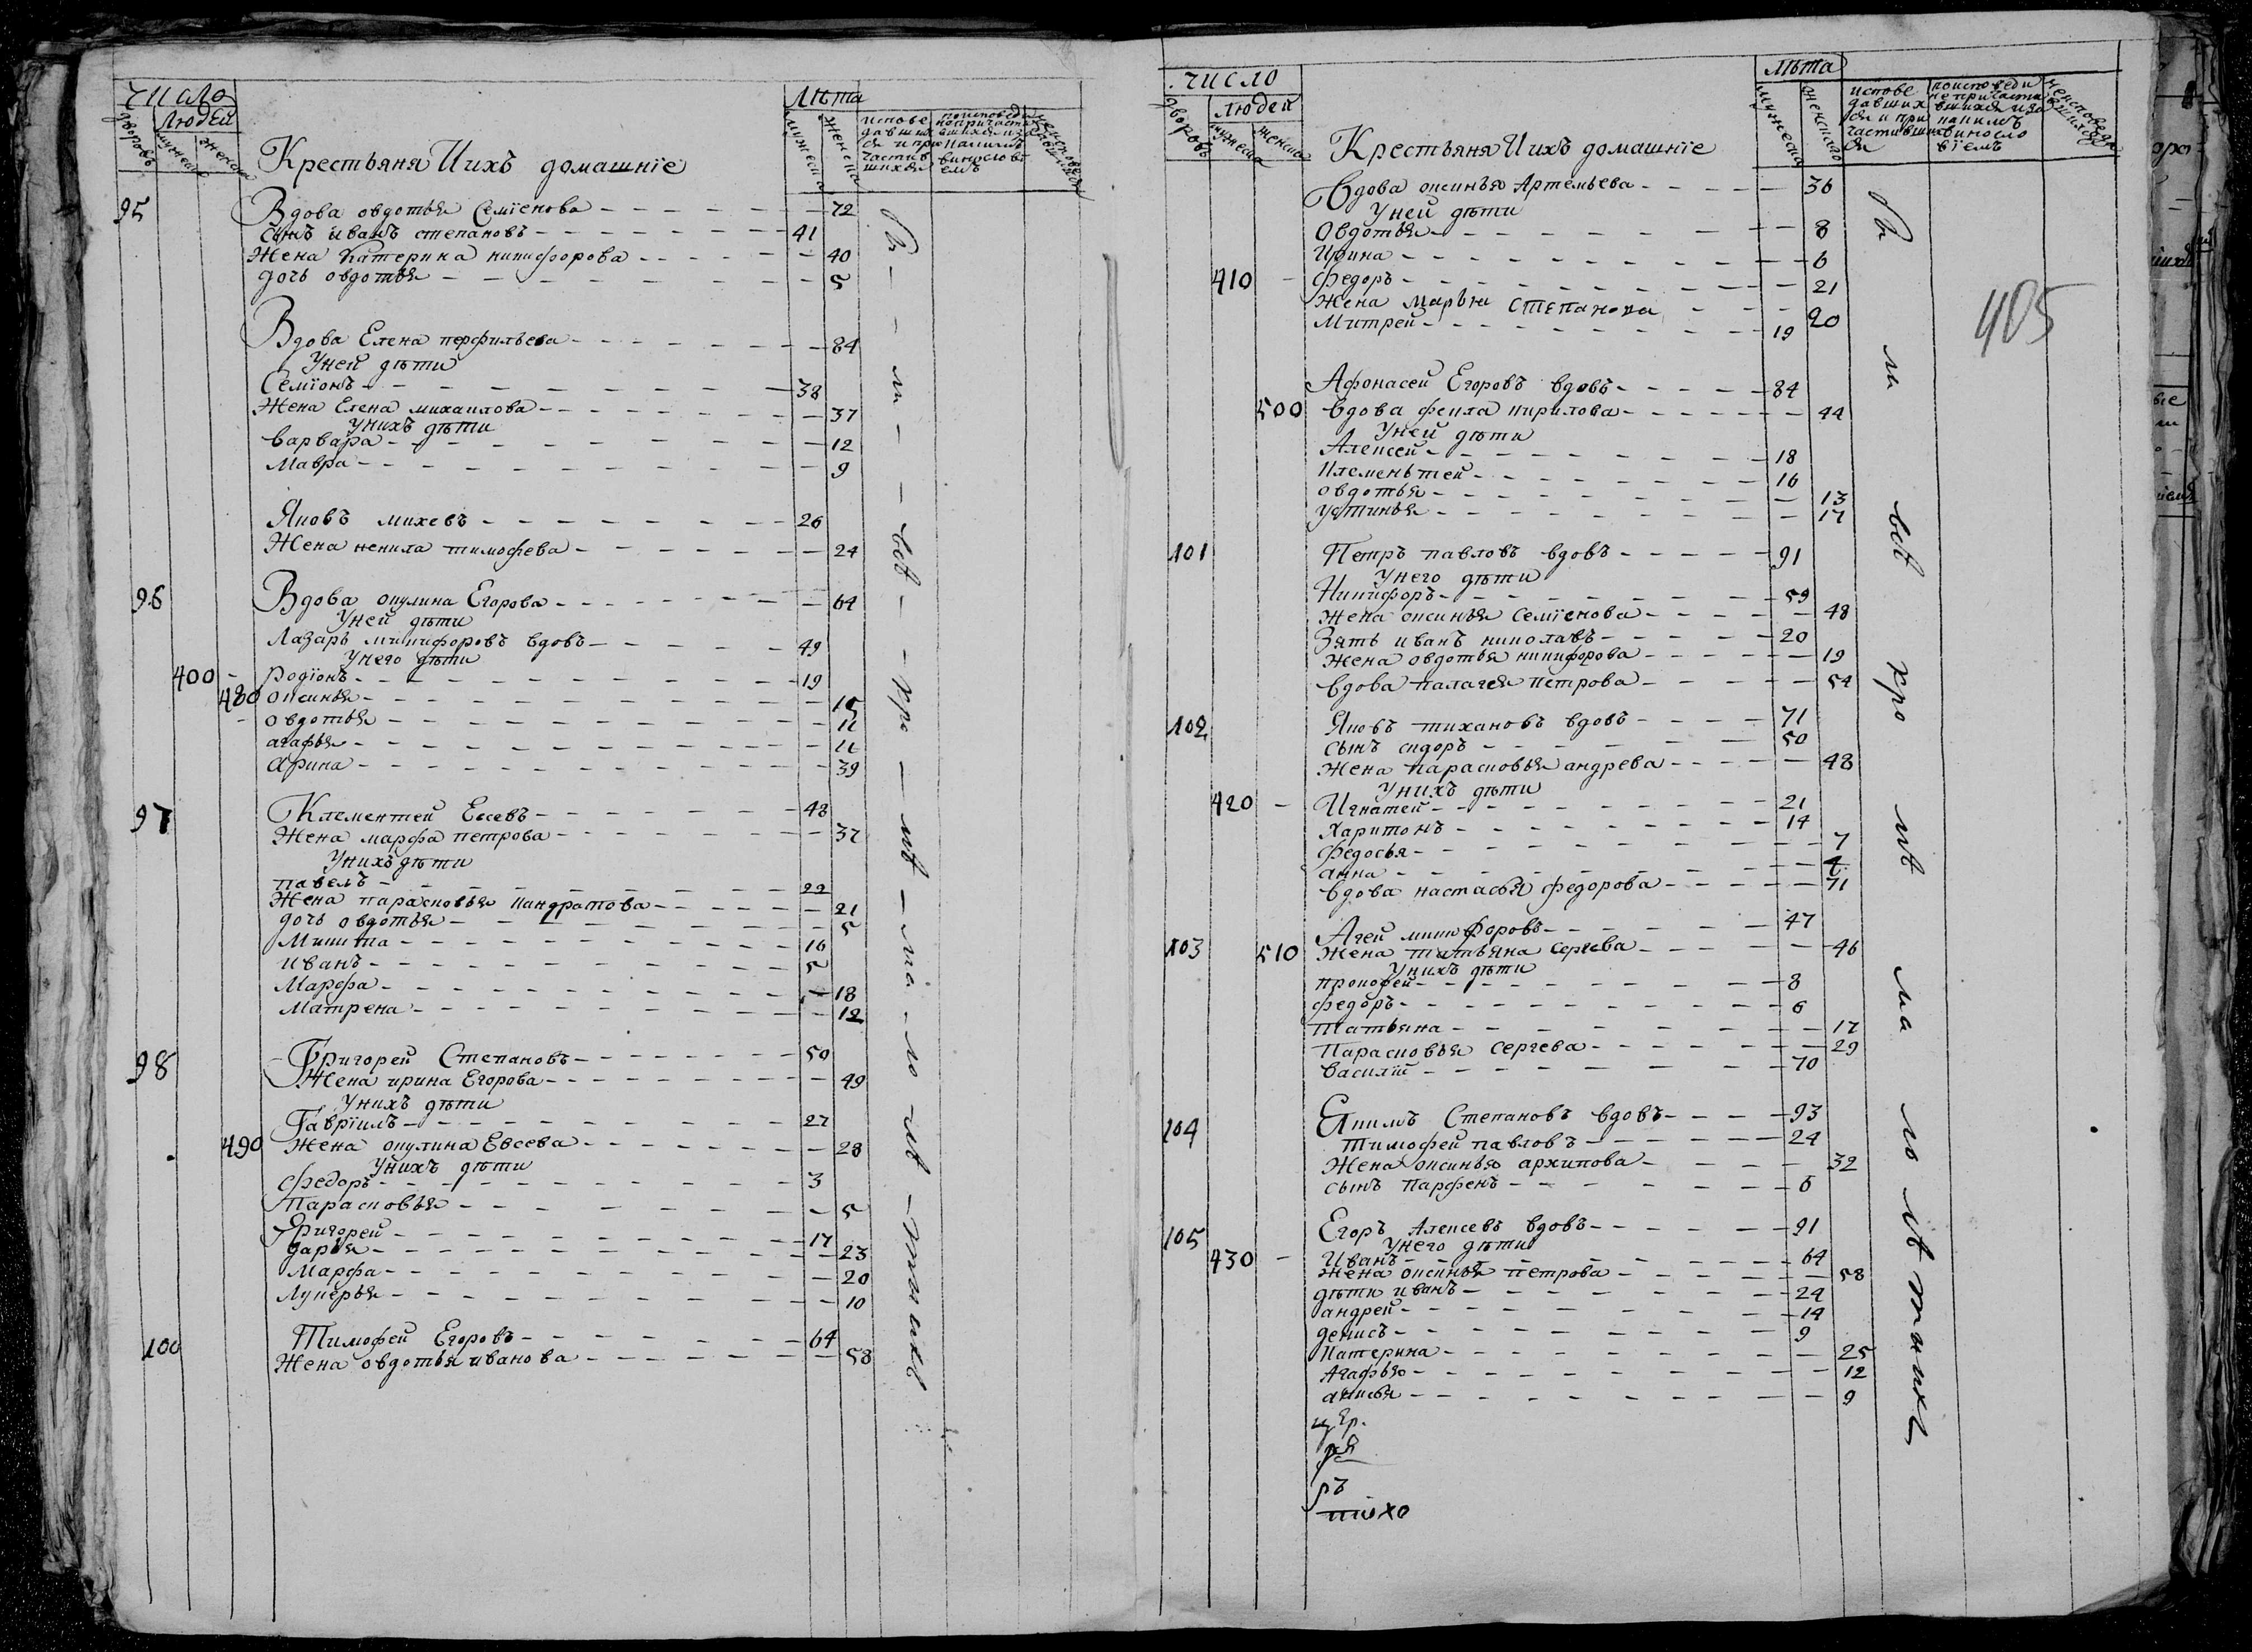 число
Лѣта
Людей
дворовъ
мужеска
женска
мужеска
женска
исповедавшихся и причастившихся
Крестьяня Иихъ домашнїе
95 Вдова овдотья Семїенова 72
сынъ иванъ степановъ 41
Жена катерина никифорова 40
дочь овдотья 5
Вдова Елена перфильева 84
Уней дѣти
Семїонъ 38
Жена Елена михаилова 37
Унихъ дѣти
варвара 12
Мавра 9
Яковъ михевъ 26
Жена ненила тимофева 24
96 Вдова окулина Егорова 64
Уней дѣти
Лазарь никифоровъ вдовъ 49
Унего дѣти
400 Родїонъ 19
480 оксинья 15
овдотья 11
агафья 11
арина 39
97 Клементей Евсевъ 48
Жена марфа петрова 37
Унихъ дѣти
павелъ 22
Жена парасковья кандратова 21
дочь овдотья 5
Микита 16
иванъ 5
Марфа 18
Матрена 12
98 Григорей Степановъ 50
Жена ирина Егорова 49
Унихъ дѣти
Гаврїилъ 27
490 Жена окулина Евсева 28
Унихъ дѣти
федоръ 3
Парасковья 5
Григорей 17
дарья 23
Марфа 20
Лукерья 10
100 Тимофей Егоровъ 64
Жена овдотья иванова 58
число
лѣта
людей
дворовъ
мужеска
женска
мужеска
женска
исповедавшихся и причастившихся
Крестьяня Иихъ домашнїе
405
Вдова оксинья Артемьева 36
Уней дѣти
Овдотья 8
Ирина 6
410 федоръ 21
Жена марья степанова 20
Митрей 19
Афонасей Егоровъ вдовъ 84
500 вдова фекла кирилова 44
Уней дѣти
Алексей 18
Клеменьтей 16
овдотья 13
устинья 17
101 Петръ павловъ вдовъ 91
Унего дѣти
Никифоръ 59
Жена оксинья семїенова 48
Зять иванъ николавъ 20
Жена овдотья никифорова 19
вдова палагея петрова 54
102 Яковъ тихановъ вдовъ 71
сынъ сидоръ 50
Жена парасковья андрева 48
Унихъ дѣти
420 Игнатей 21
Харитонъ 14
федосья 7
анна 4
вдова настасья федорова 71
103 Агей никифоровъ 47
510 Жена татьяна сергева 46
Унихъ дѣти
прокофей 8
федоръ 6
татьяна 17
Парасковья сергева 29
василїй 70
104 Екимъ Степановъ вдовъ 93
Тимофей павловъ 24
Жена оксинья архипова 32
сынъ парфенъ 6
105 Егоръ Алексевъ вдовъ 91
Унего дѣти
430 Иванъ 64
Жена оксинья петрова 58
дѣти иванъ 24
андрей 14
денисъ 9
Катерина 25
Агафья 12
анисья 9